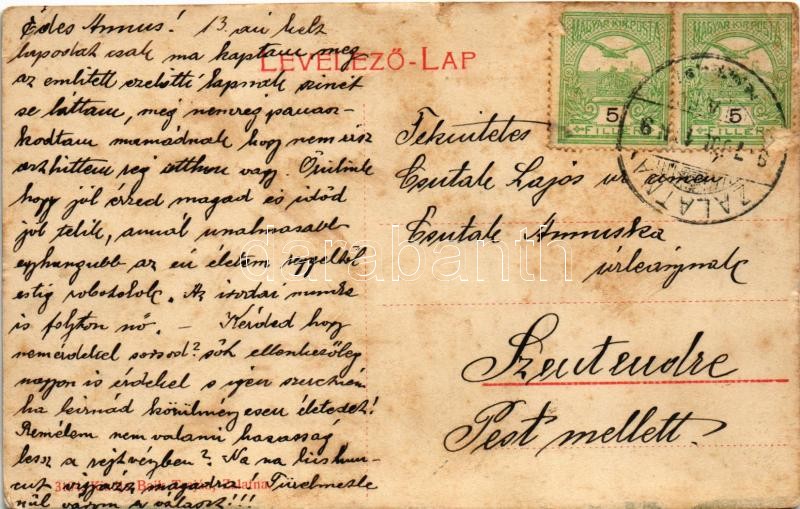 Édes Annus! 13. án kelt
lapodat csak ma kaptam meg
LEVELEZŐ-LAP
az említett ezelőtti lapnak színét
se láttam, még
kodtam mamádnak hogy nem írsz
azt hittem rég otthon vagy. Örülünk
hogy jól érzed magad és időd
jól telik, annál unalmasabb
egyhangubb az én életem reggeltől
estig robotolok. Az irodai munka
is folyton nő. — Kérded hogy
nem érdekel sorsod? sőt ellenkezőleg
nagyon is érdekel s igen szeretném
ha leirnád körülményesen életedet!
Remélem nem valami házasság
lesz a rejtvényben? Na na kis hun-
cut vigyázz magadra! Türelmetle
nül várom a választ!!!
Zalatna
MAGYAR KIR. POSTA
5
FILLÉR
MAGYAR KIR. POSTA
5
FILLÉR
ZALATNA
Tekintetes
Csutak Lajos ur címén
Csutak Annuska
úrleánynak
Szentendre
Pest mellett.
darabanth